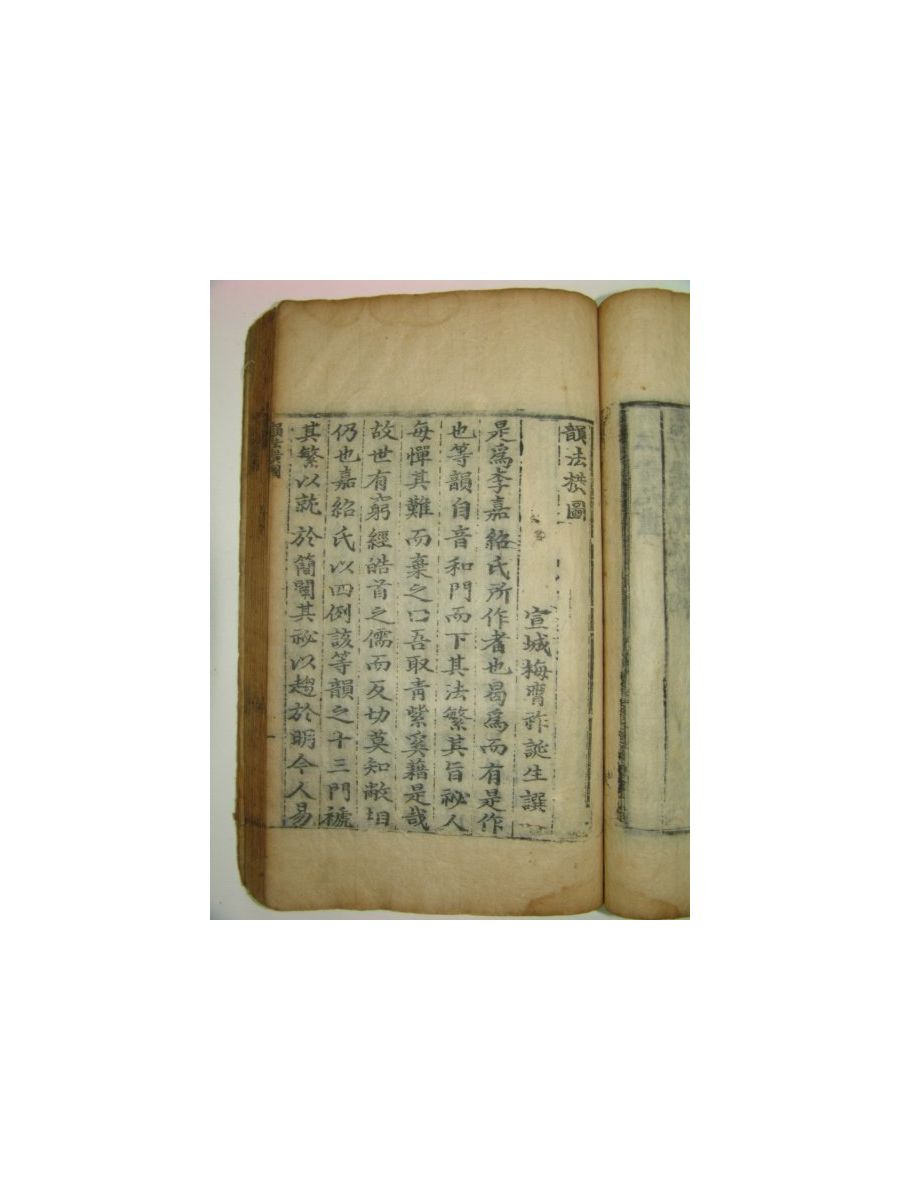 韻法横圖
宣城梅膺祚誕生譔
是爲李嘉紹氏所作者也曷爲而有是作
也等韻自音和門而下其法繁其旨祕人
每憚其難而棄之曰吾取青紫奚藉是哉
故世有窮經皓首之儒而反切莫知敝坦
仍也嘉紹氏以四例該等韻之十三門褫
其繁以就於簡闡其祕以趨於明令人易
韻法橫圖